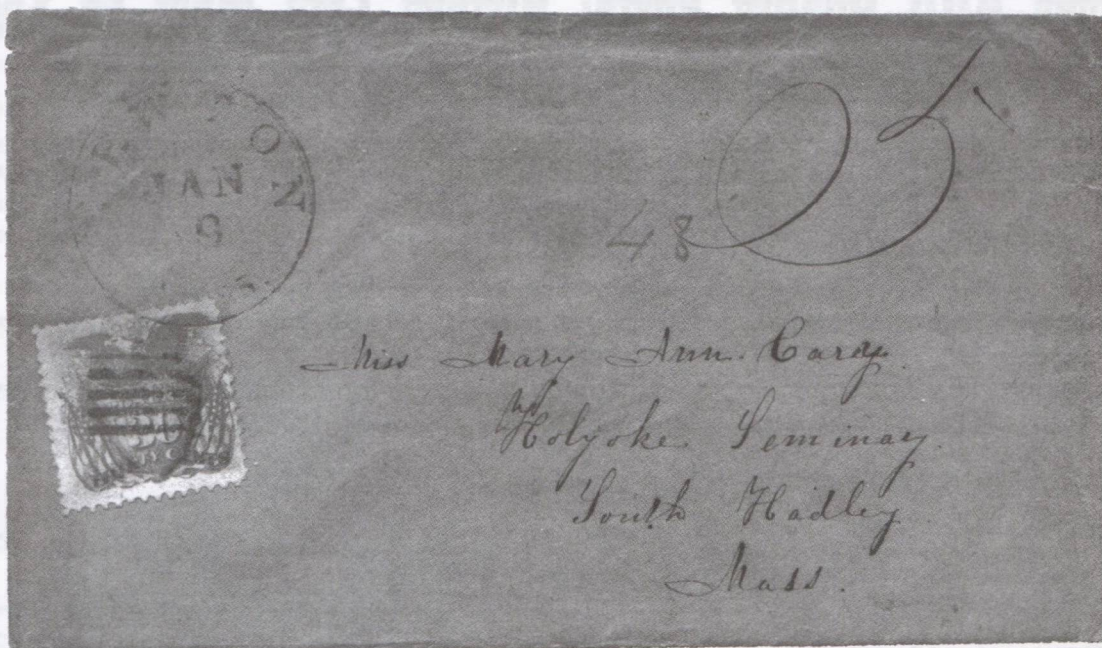 ON
JAN
8
5
48
30
Miss Mary Ann. Cary.
Mt Holyoke Seminary.
South Hadley
Mass.